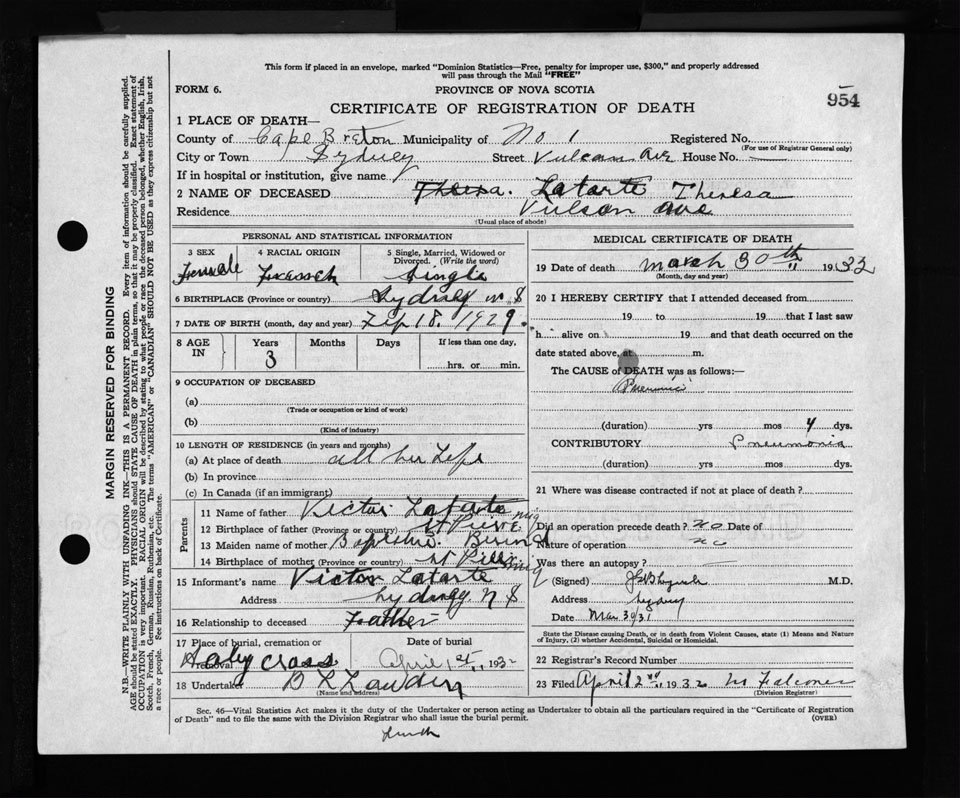 This form if placed in an envelope, marked "Dominion Statistics—Free, penalty for improper use, $300," and properly addressed
will pass through the Mail "FREE"
FORM 6. PROVINCE OF NOVA SCOTIA
CERTIFICATE OF REGISTRATION OF DEATH
954
1 PLACE OF DEATH—
County of Cape Breton Municipality of No 1 Registered No.
(For use of Registrar General only)
City or Town Sydney Street Vulcan Ave House No. —
If in hospital or institution, give name
2 NAME OF DECEASED Theresa. Latarte Theresa
Residence Vulson Ave
(Usual place of abode)
PERSONAL AND STATISTICAL INFORMATION
3 SEX 4 RACIAL ORIGIN 5 Single, Married, Widowed or
Divorced. (Write the word)
Female Single
6 BIRTHPLACE (Province or country) Sydney N S
7 DATE OF BIRTH (month, day and year) 18. 1929.
8 AGE IN Years Months Days If less than one day,
3 hrs. or min.
9 OCCUPATION OF DECEASED
(a)
(Trade or occupation or kind of work)
(b)
(Kind of industry)
10 LENGTH OF RESIDENCE (in years and months)
(a) At place of death all her Life
(b) In province
(c) In Canada (if an immigrant)
Parents
11 Name of father Victor Latarte
12 Birthplace of father (Province or country) St Pierre Miq
13 Maiden name of mother
14 Birthplace of mother (Province or country) St Pierre Miq
15 Informant's name Victor Latarte
Address Sydney N S
16 Relationship to deceased Father
17 Place of burial, cremation or removal Date of burial
Holy Cross April 1st 1932
18 Undertaker
(Name and address)
MEDICAL CERTIFICATE OF DEATH
19 Date of death March 30th 1932
(Month, day and year)
20 I HEREBY CERTIFY that I attended deceased from
19 to 19 that I last saw
h alive on 19 and that death occurred on the
date stated above, at m.
The CAUSE of DEATH was as follows:—
Pneumonia
(duration) yrs mos 4 dys.
CONTRIBUTORY Pneumonia
(duration) yrs mos dys.
21 Where was disease contracted if not at place of death?
Did an operation precede death? no Date of
Nature of operation no
Was there an autopsy? —
(Signed) M.D.
Address Sydney
Date Mar 30/31
State the Disease causing Death, or in death from Violent Causes, state (1) Means and Nature
of Injury, (2) whether Accidental, Suicidal or Homicidal.
22 Registrar's Record Number
23 Filed April 2nd 1932 M Falconer
(Division Registrar)
Sec. 46—Vital Statistics Act makes it the duty of the Undertaker or person acting as Undertaker to obtain all the particulars required in the "Certificate of Registration
of Death" and to file the same with the Division Registrar who shall issue the burial permit. (OVER)
MARGIN RESERVED FOR BINDING
N.B.—WRITE PLAINLY WITH UNFADING INK—THIS IS A PERMANENT RECORD. Every item of information should be carefully supplied.
AGE should be stated EXACTLY. PHYSICIANS should STATE CAUSE OF DEATH in plain terms, so that it may be properly classified. Exact statement of
OCCUPATION is very important. RACIAL ORIGIN will be described by stating to what people or race the deceased person belonged, whether English, Irish,
Scotch, French, German, Russian, Ruthenian, etc. The terms "AMERICAN" or "CANADIAN" SHOULD NOT BE USED as they express citizenship but not
a race or people. See instructions on back of Certificate.